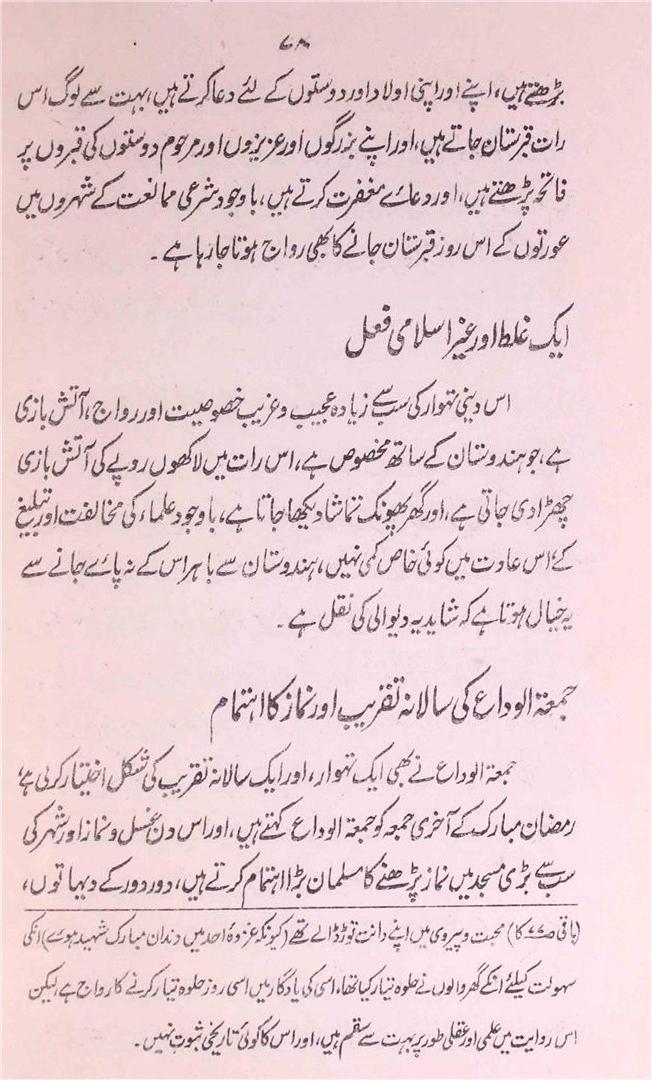 ۷۸
پڑھتے ہیں، اپنے اور اپنی اولاد اور دوستوں کے لئے دعا کرتے ہیں، بہت سے لوگ اس
رات قبرستان جاتے ہیں، اور اپنے بزرگوں اور عزیزوں اور مرحوم دوستوں کی قبروں پر
فاتحہ پڑھتے ہیں، اور دعائے مغفرت کرتے ہیں، باوجود شرعی ممانعت کے شہروں میں
عورتوں کے اس روز قبرستان جانے کا بھی رواج ہوتا جا رہا ہے۔
ایک غلط اور غیر اسلامی فعل
اس دینی تہوار کی سب سے زیادہ عجیب و غریب خصوصیت اور رواج، آتش بازی
ہے، جو ہندوستان کے ساتھ مخصوص ہے، اس رات میں لاکھوں روپے کی آتش بازی
چھڑا دی جاتی ہے، اور گھر پھونک تماشا دیکھا جاتا ہے، باوجود علماء کی مخالفت اور تبلیغ
کے اس عادت میں کوئی خاص کمی نہیں، ہندوستان سے باہر اس کے نہ پائے جانے سے
یہ خیال ہوتا ہے کہ شاید یہ دیوالی کی نقل ہے۔
جمعۃ الوداع کی سالانہ تقریب اور نماز کا اہتمام
جمعۃ الوداع نے بھی ایک تہوار، اور ایک سالانہ تقریب کی شکل اختیار کرلی ہے،
رمضان مبارک کے آخری جمعہ کو جمعۃ الوداع کہتے ہیں، اور اس دن غسل و نماز اور شہر کی
سب سے بڑی مسجد میں نماز پڑھنے کا مسلمان بڑا اہتمام کرتے ہیں، دور دور کے دیہاتوں،
(باقی ص۷۷ کا) محبت و پیروی میں اپنے دانت توڑ ڈالے تھے (کیونکہ غزوۂ احد میں دندان مبارک شہید ہوئے) انکی
سہولت کیلئے انکے گھر والوں نے حلوہ تیار کیا تھا، اسی کی یادگار میں اسی روز حلوہ تیار کرنے کا رواج ہے، لیکن
اس روایت میں علمی اور عقلی طور پر بہت سے سقم ہیں، اور اس کا کوئی تاریخی ثبوت نہیں۔